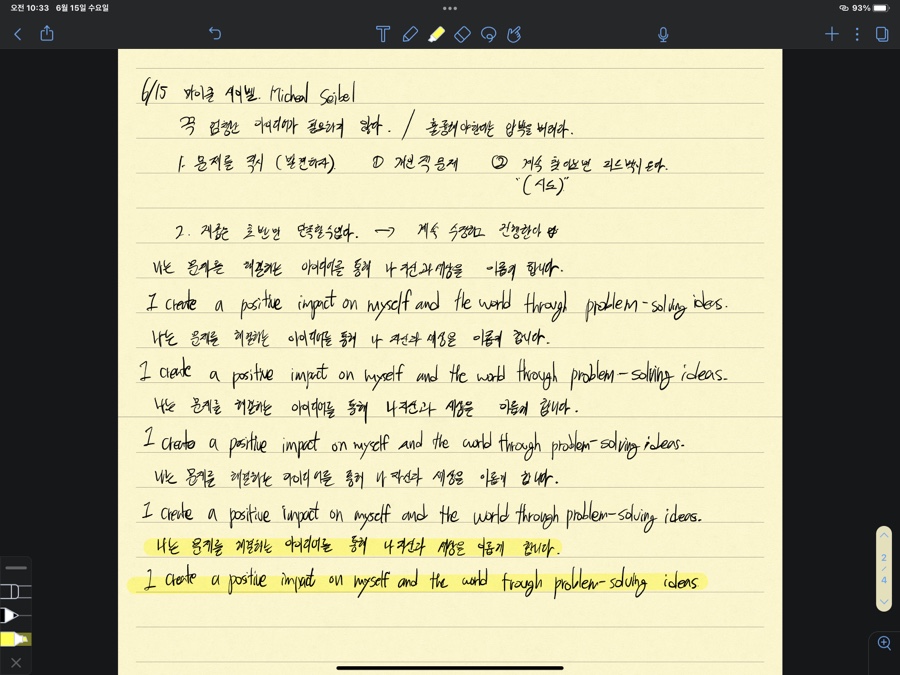 오전 10:33 6월 15일 수요일
93%
6/15 마이클 시이벨. Micheal Seibel
꼭 엄청난 아이디어가 필요하지 않다. / 훌륭해야한다는 압박을 버려라.
1. 문제를 즉시 (발견하자). ① 개인적 문제 ② 계속 찾아보면 피드백이 온다.
"(시도)"
2. 처음은 초반만 만족할수없다. → 계속 수정하고 진행한다
나는 문제를 해결하는 아이디어를 통해 나 자신과 세상을 이롭게 합니다.
I create a positive impact on myself and the world through problem-solving ideas.
나는 문제를 해결하는 아이디어를 통해 나 자신과 세상을 이롭게 합니다.
I create a positive impact on myself and the world through problem-solving ideas.
나는 문제를 해결하는 아이디어를 통해 나 자신과 세상을 이롭게 합니다.
I create a positive impact on myself and the world through problem-solving ideas.
나는 문제를 해결하는 아이디어를 통해 나 자신과 세상을 이롭게 합니다.
I create a positive impact on myself and the world through problem-solving ideas.
나는 문제를 해결하는 아이디어를 통해 나 자신과 세상을 이롭게 합니다.
I create a positive impact on myself and the world frough problem-solving ideas
2
/
4